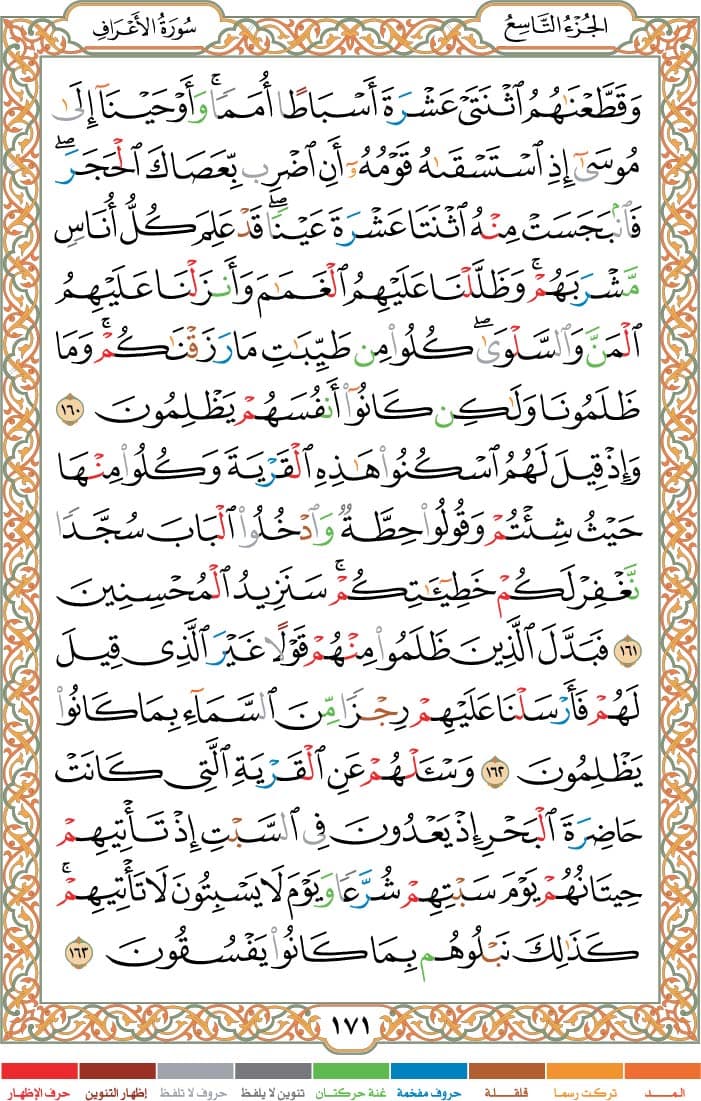 الجُزْءُ التَّاسِعُ
سُورَةُ الأَعْرَافِ
وَقَطَّعْنَٰهُمُ ٱثْنَتَىْ عَشْرَةَ أَسْبَاطًا أُمَمًا ۚ وَأَوْحَيْنَآ إِلَىٰ
مُوسَىٰٓ إِذِ ٱسْتَسْقَىٰهُ قَوْمُهُۥٓ أَنِ ٱضْرِب بِّعَصَاكَ ٱلْحَجَرَ ۖ
فَٱنۢبَجَسَتْ مِنْهُ ٱثْنَتَا عَشْرَةَ عَيْنًا ۖ قَدْ عَلِمَ كُلُّ أُنَاسٍ
مَّشْرَبَهُمْ ۚ وَظَلَّلْنَا عَلَيْهِمُ ٱلْغَمَٰمَ وَأَنزَلْنَا عَلَيْهِمُ
ٱلْمَنَّ وَٱلسَّلْوَىٰ ۖ كُلُوا۟ مِن طَيِّبَٰتِ مَا رَزَقْنَٰكُمْ ۚ وَمَا
ظَلَمُونَا وَلَٰكِن كَانُوٓا۟ أَنفُسَهُمْ يَظْلِمُونَ ١٦٠
وَإِذْ قِيلَ لَهُمُ ٱسْكُنُوا۟ هَٰذِهِ ٱلْقَرْيَةَ وَكُلُوا۟ مِنْهَا
حَيْثُ شِئْتُمْ وَقُولُوا۟ حِطَّةٌ وَٱدْخُلُوا۟ ٱلْبَابَ سُجَّدًا
نَّغْفِرْ لَكُمْ خَطِيٓـَٰٔتِكُمْ ۚ سَنَزِيدُ ٱلْمُحْسِنِينَ
١٦١ فَبَدَّلَ ٱلَّذِينَ ظَلَمُوا۟ مِنْهُمْ قَوْلًا غَيْرَ ٱلَّذِى قِيلَ
لَهُمْ فَأَرْسَلْنَا عَلَيْهِمْ رِجْزًا مِّنَ ٱلسَّمَآءِ بِمَا كَانُوا۟
يَظْلِمُونَ ١٦٢ وَسْـَٔلْهُمْ عَنِ ٱلْقَرْيَةِ ٱلَّتِى كَانَتْ
حَاضِرَةَ ٱلْبَحْرِ إِذْ يَعْدُونَ فِى ٱلسَّبْتِ إِذْ تَأْتِيهِمْ
حِيتَانُهُمْ يَوْمَ سَبْتِهِمْ شُرَّعًا وَيَوْمَ لَا يَسْبِتُونَ ۙ لَا تَأْتِيهِمْ ۚ
كَذَٰلِكَ نَبْلُوهُم بِمَا كَانُوا۟ يَفْسُقُونَ ١٦٣
١٧١
المـــد تركت رسما قلقـلة حروف مفخمة غنة حركتان تنوين لا يلفظ حروف لا تلفظ إظهار التنوين حرف الإظهار